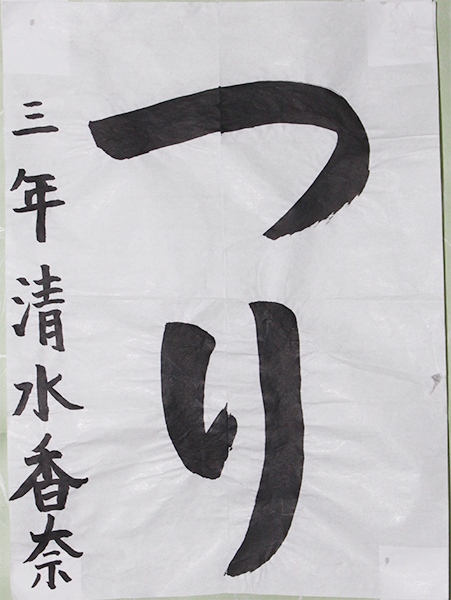 つり
三年清水香奈